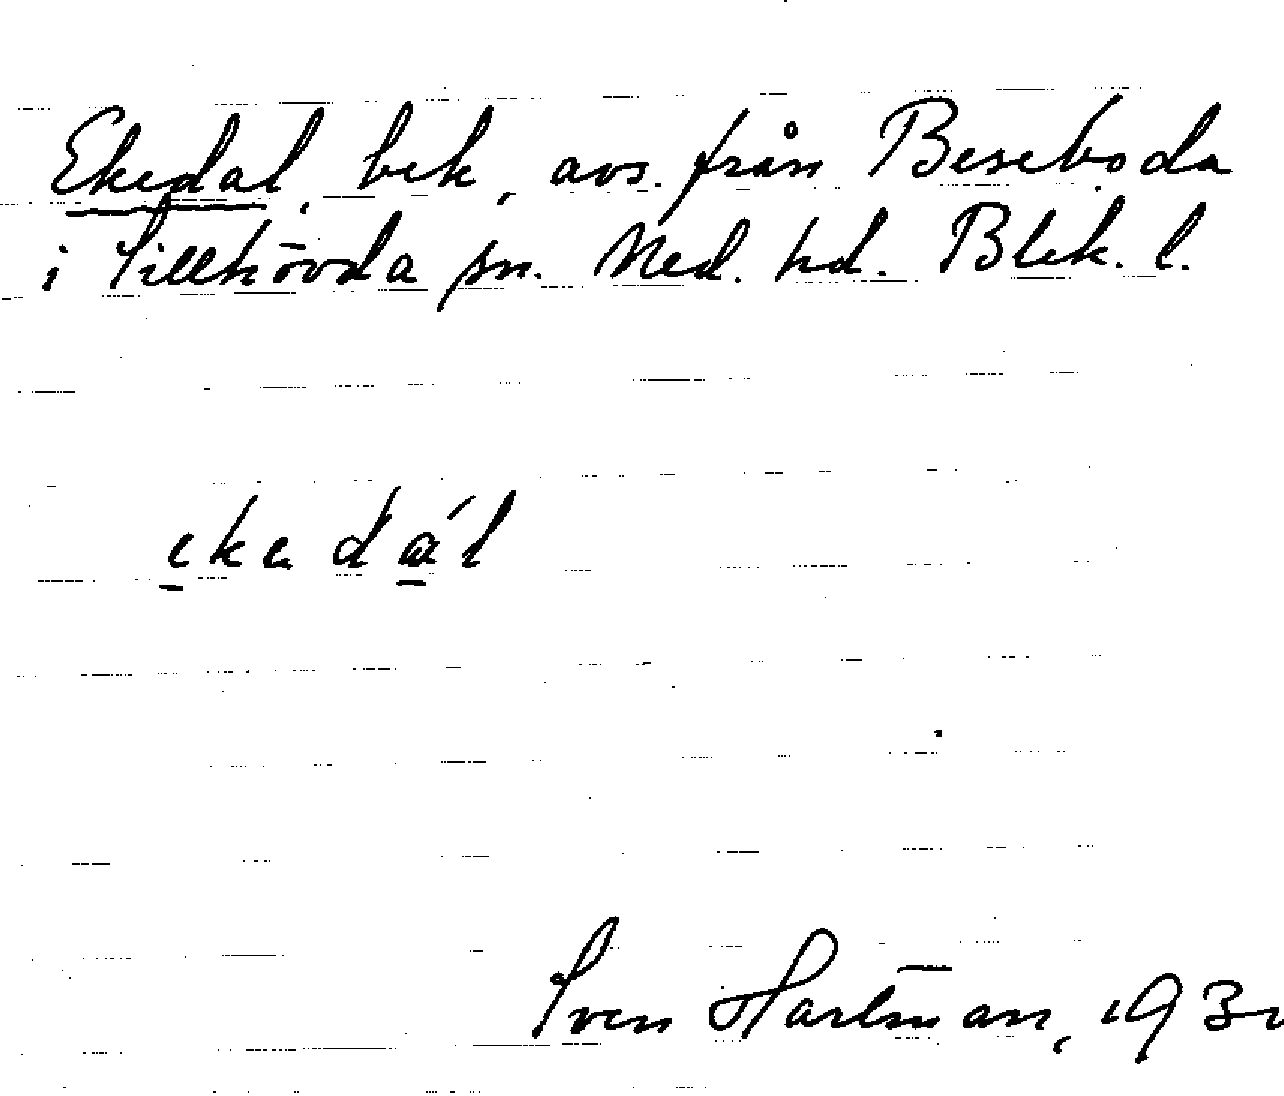 Ekedal, bek, avs. från Beseboda
i Tillhövda sn. Med. hd. Blek. l.
ekedál
Sven Hartman, 193